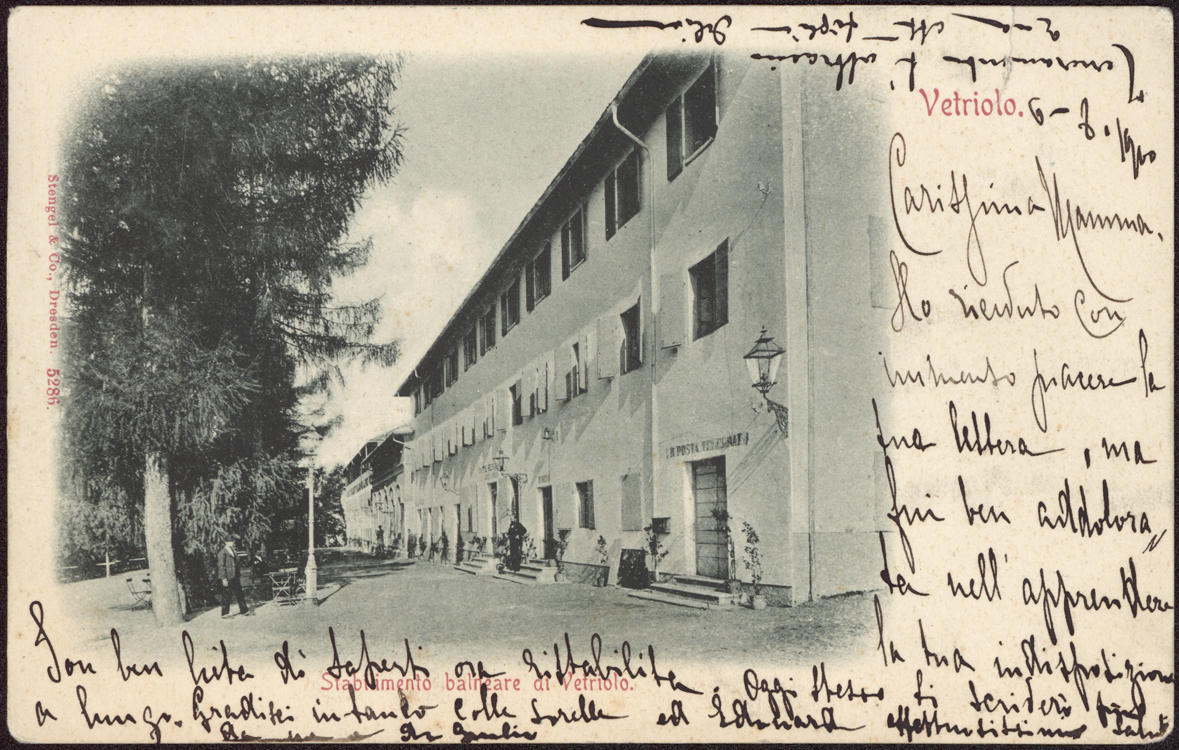 Vetriolo.
9-8.1900
Carissima Mamma.
Ho ricevuto con
immenso piacere la
tua lettera, ma
fui ben addolora„
ta nell'apprendere
la tua indisposizione
Son ben lieta di saperti ora ristabilita. Oggi stesso ti scriverò
a lungo. Gradisci intanto colle sorelle ed Edoardo affettuosissimi saluti
da me e da Giulio
Teneramente t'abbraccio
tua aff figlia
Stabilimento balneare di Vetriolo.
Stengel & Co., Dresden. 5286.
POSTA TELEGRAFI